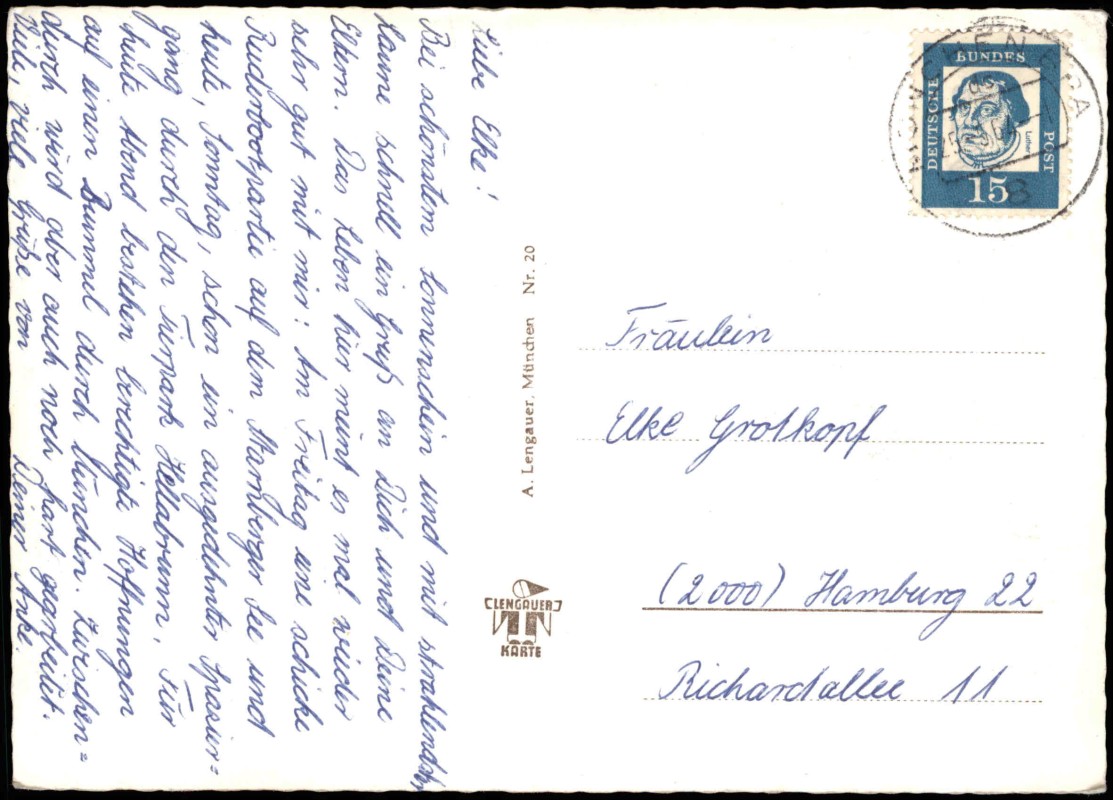 Liebe Elke!
Bei schönstem Sonnenschein und mit strahlendster
Laune schnell ein Gruß an Dich und Deine
Eltern. Das Leben hier meint es mal wieder
sehr gut mit mir: Am Freitag eine schicke
Ruderbootpartie auf dem Starnberger See und
heute, Sonntag, schon ein ausgedehnter Spazier=
gang durch den Tierpark Hellabrunn. Für
heute Abend bestehen berechtigte Hoffnungen
auf einen Bummel durch München. Zwischen=
durch wird aber auch noch hart gearbeitet.
Viele, viele Grüße von
Deiner Anke.
A. Lengauer, München Nr. 20
LENGAUER
KARTE
DEUTSCHE
BUNDES
POST
Luther
15
MÜNCHEN
8
Fräulein
Elke Grotkopf
(2000) Hamburg 22
Richardallee 11